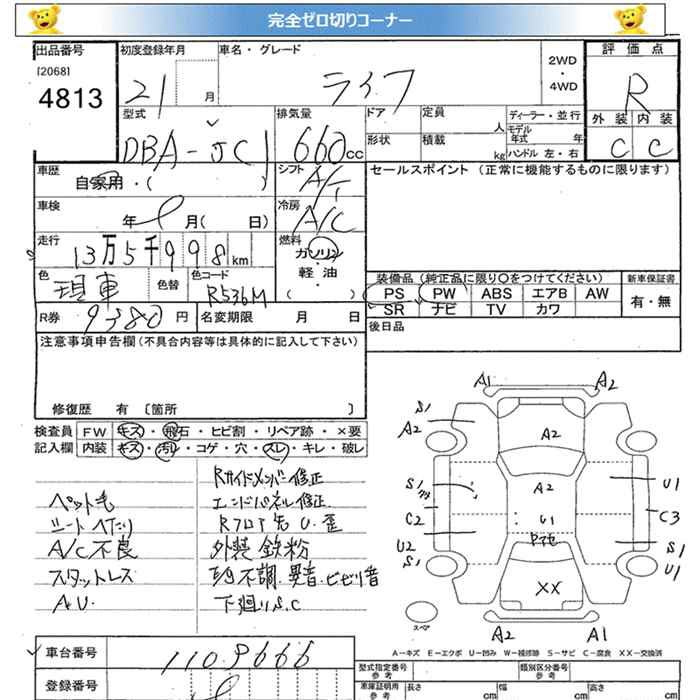 完全ゼロ切りコーナー
出品番号 初度登録年月 車名・グレード 2WD・4WD 評価点
[2068]
4813 21 月 ライフ R
型式 排気量 ドア 定員 人 ディーラー・並行 外装 内装
DBA-JC1 660cc 形状 積載 kg モデル年式 年 ハンドル 左・右 C C
車歴 シフト セールスポイント (正常に機能するものに限ります)
自家用・( ) A/T
車検 冷房
年 月( 日) A/C
走行 燃料
13万5千998km ガソリン
色 色替 色コード 軽油 装備品 (純正品に限り〇をつけてください) 新車保証書
現車 R536M ( ) PS PW ABS エアB AW 有・無
SR ナビ TV カワ
R券 9380円 名変期限 月 日 後日品
注意事項申告欄(不具合内容等は具体的に記入して下さい)
修復歴 有 〔箇所 〕
検査員 FW キズ・飛石・ヒビ割・リペア跡・×要
記入欄 内装 キズ・汚れ・コゲ・穴・スレ・キレ・破レ
Rサイドメンバー修正
ペット毛 エンドパネル修正
シートヘタリ Rフロア U.歪
A/C不良 外装鉄粉
スタットレス 不調.異音.ビビリ音
A.U. 下廻りS.C
A1 A2
S1
A2 A2
S1 A2 U1
C2 U1 C3
U2 S1
S1 XX U1
スペア A2 A1
A−キズ E−エクボ U−凹み W−補修跡 S−サビ C−腐食 XX−交換済
車台番号 1109666 型式指定番号 参考 類別区分番号 参考
登録番号 車庫証明用 参考 長さ cm 幅 cm 高さ cm